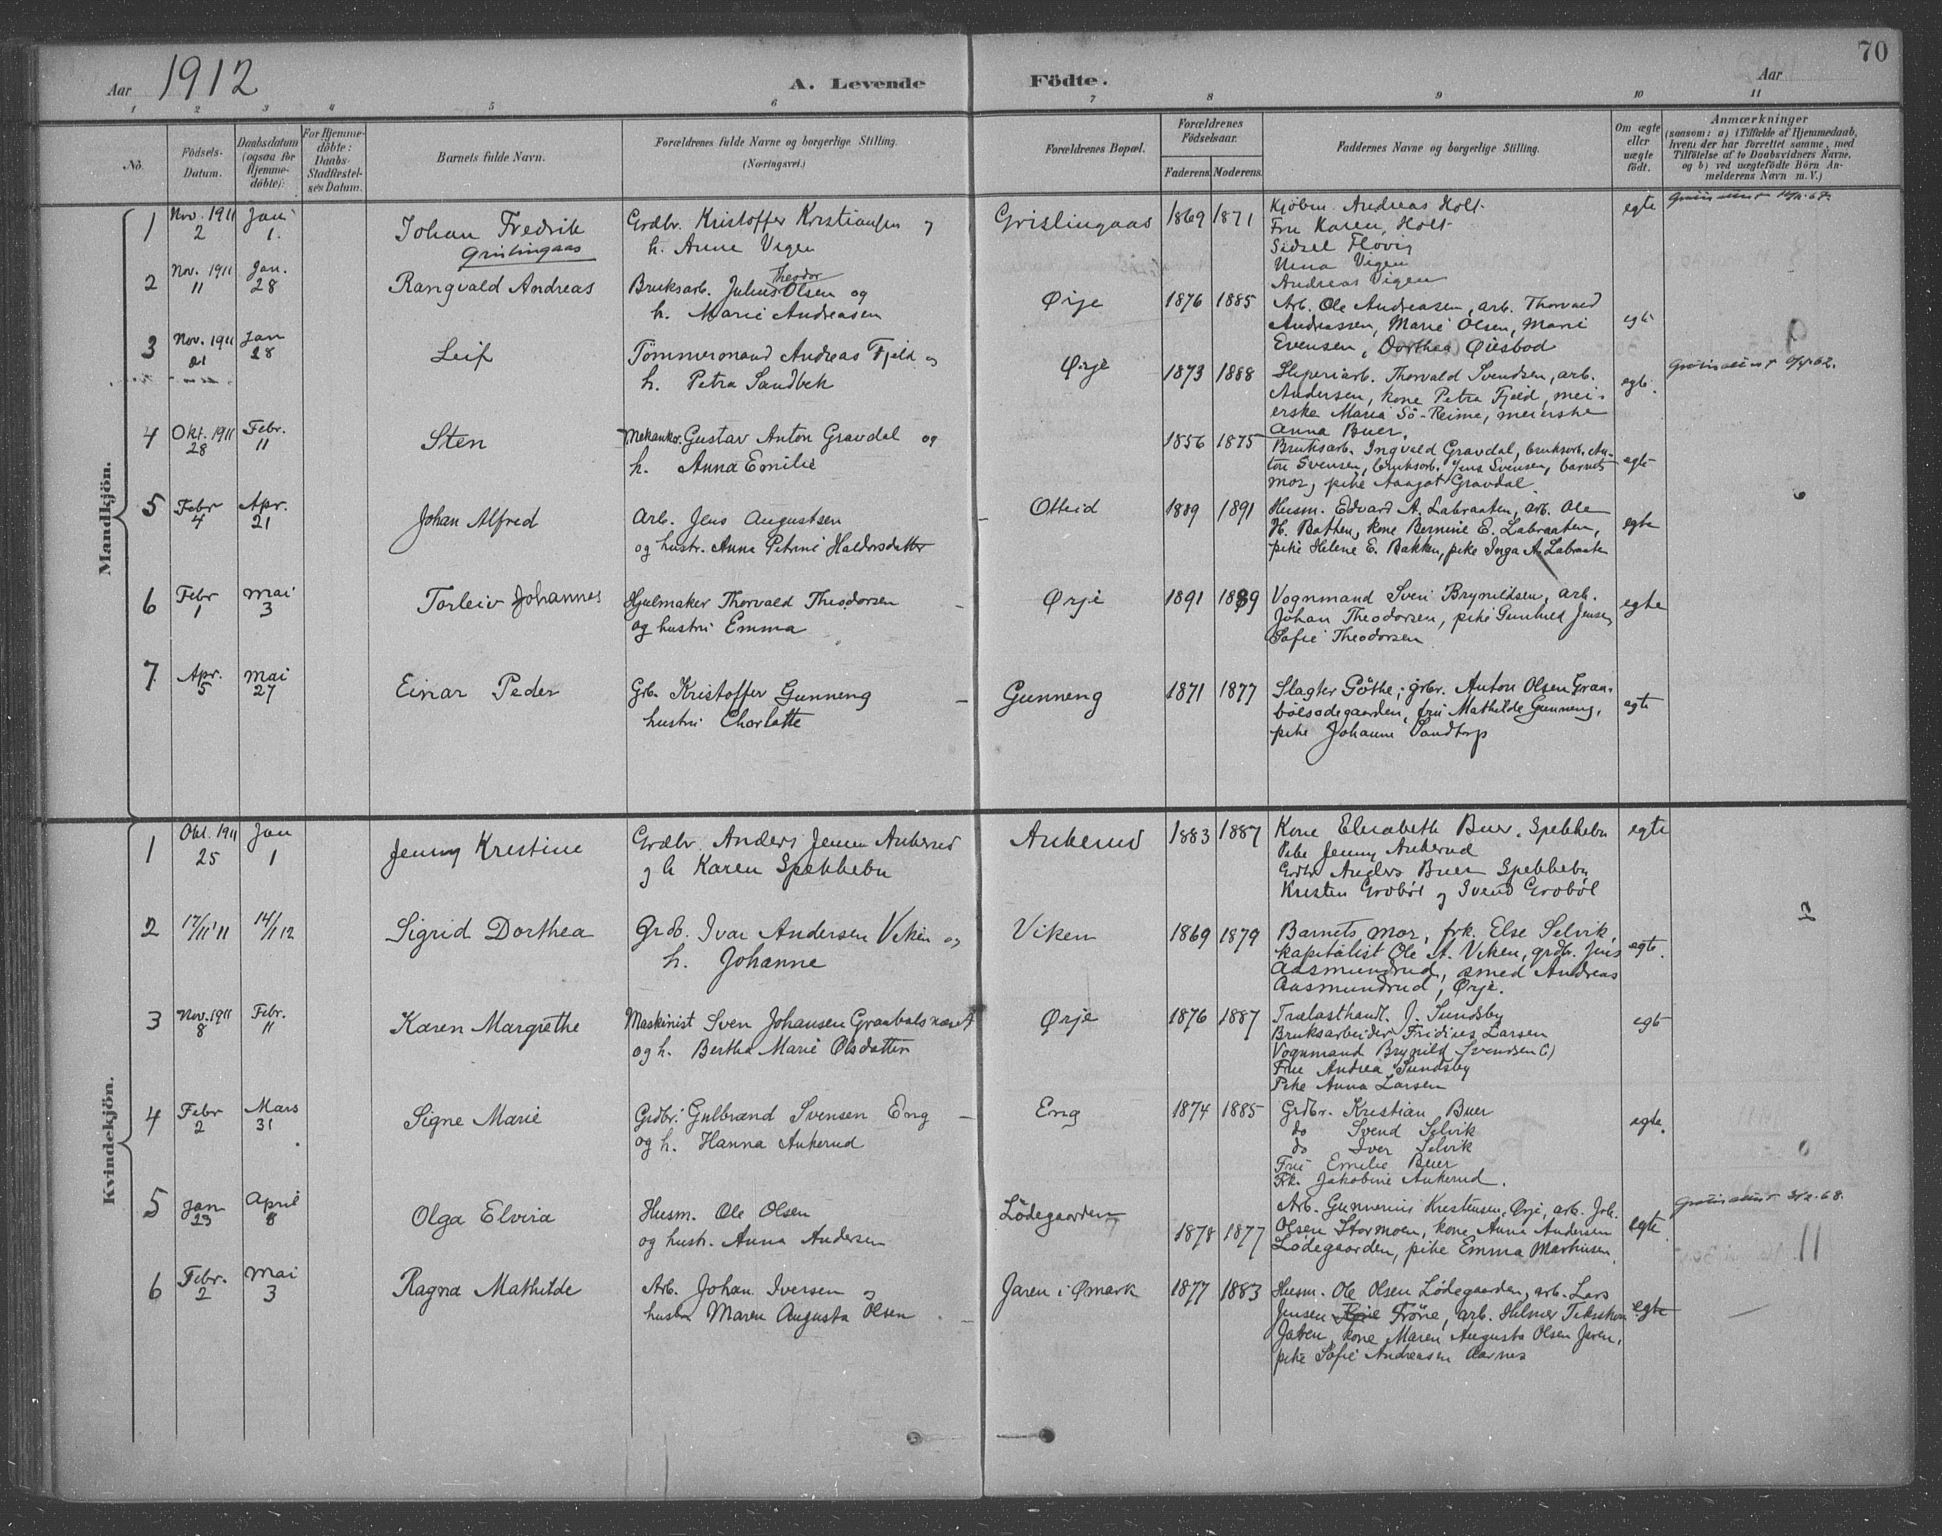 70
Aar 1912 A. Levende Födte. Aar
1 2 3 4 5 6 7 8 9 10 11
No. Födsels-Datum. Daabsdatum (ogsaa for Hjemmedöbte): For Hjemmedöbte: Daabs-Stadfæstelses Datum. Barnets fulde Navn. Forældrenes fulde Navne og borgerlige Stilling. (Næringsvei.) Forældrenes Bopæl. Forældrenes Födselsaar. Faderens. Moderens. Faddernes Navne og borgerlige Stilling. Om ægte eller uægte födt. Anmærkninger (saasom: a) i Tilfælde af Hjemmedaab, hvem der har forrettet samme, med Tilföielse af to Daabsvidners Navne, og b) ved uægtefödte Börn Anmelderens Navn m. V.)
Mandkjön.
1 Nov. 1911 2 Jan. 1. Johan Fredrik Grdbr. Kristoffer Kristiansen og Grislingaas 1869 1871 Kjöbm. Andreas Holt egte
Grislingaas h. Anne Vigen Fru Karen Holt
Sidsel Flovig
Vigen
Andreas Vigen
2 Nov. 1911 11 Jan. 28 Rangvald Andreas Bruksarb. Julius Theodor Olsen og Ørje 1876 1885 Arb. Ole Andreasen, arb. Thorvald egte
h. Marie Andreasen Andreassen, Marie Olsen, Marie
Evensen, Dorthea Øiesbod
3 Nov. 1911 21 Jan 28 Leif Tömmermand Andreas Fjeld og Ørje 1873 1888 Sliperiarb. Thorvald Svendsen, arb. egte.
h. Petra Sandbek Andersen, kone Petra Fjeld, mei-
erske Maria Sö-Reime, meierske
Anna Buer.
4 Okt. 1911 28 Febr. 11 Sten Mekaniker Gustav Anton Gravdal og 1856 1875 Bruksarb. Ingvald Gravdal, bruksarb. An- egte
h. Anna Emilie ton Svensen, bruksarb. Jens Svensen, barnets
mor, pike Aagot Gravdal
5 Febr 4 Apr. 21 Johan Alfred Arb. Jens Augustsen Otteid 1889 1891 Husm. Edvard A. Labraaten, arb. Ole egte
og hustr. Anna Petrine Haldorsdatter H. Bakken, kone Bernine E. Labraaten,
pike Helene E. Bakken, pike Inga A. Labraaten
6 Febr 1 Mai 3 Torleiv Johannes Hjulmaker Thorvald Theodorsen Ørje 1891 1889 Vognmand Sven Brynildsen, arb. egte
og hustru Emma Johan Theodorsen, pike Gunhild Jensen,
Sofie Theodorsen
7 Apr. 5 Mai 27 Einar Peder Grb. Kristoffer Gunneng Gunneng 1871 1877 Slagter Göthe, grbr. Anton Olsen Graa- egte
hustru Charlotte bölsödegaarden, fru Mathilde Gunneng,
pike Johanne Sandtorp
Kvindekjön.
1 Okt. 1911 25 Jan 1 Jenny Kristine Grdbr. Anders Jensen Ankerud Ankerud 1883 1887 Kone Elisabeth Buer, Spekkebu egte
og h Karen Spekkebu Pike Jenny Ankerud
Grdbr Anders Buer Spekkebu
Kristen Grobøl og Svend Grobøl
2 17/11 11 14/1 12 Sigrid Dorthea Grdb. Ivar Andersen Viken og Viken 1869 1879 Barnets mor, frk. Else Selvik, egte.
h. Johanne kapitalist Ole A. Viken, grdbr. Jens
Aasmundrud, smed Andreas
Aasmundrud, Ørje.
3 Nov. 1911 8 Febr. 11 Karen Margrethe Maskinist Sven Johansen Graabølsnæset Ørje 1876 1887 Trælasthandl. J. Sundsby egte
og h. Bertha Marie Olsdatter Bruksarbeider Fridies Larsen
Vognmand Brynild Svendsen
Frue Andrea Sundsby
Pike Anna Larsen
4 Febr 2 Mars 31 Signe Marie Grdbr. Gulbrand Svensen Eng Eng 1874 1885 Grdbr. Kristian Buer egte.
og h. Hanna Ankerud do Svend Selvik
do Iver Selvik
Fru Emilie Buer
Frk. Jakobine Ankerud.
5 Jan 23 April 8 Olga Elvira Husm. Ole Olsen Lödegaarden 1878 1877 Arb. Gunnerius Kristensen, Ørje, arb. Joh. egte
og hustr. Anna Andersen Olsen Stormoen, kone Anna Andersen
Lödegaarden, pike Emma Marhusen
11
6 Febr. 2 Mai 3 Ragna Mathilde Arb. Johan Iversen og Jaren i Ømark 1877 1883 Husm. Ole Olsen Lödegaarden, arb. Lars egte
hustru Maren Augusta Olsen Jensen Tröne, arb. Helmer
Jaren, kone Maren Augusta Olsen Jaren,
pike Sofie Andreasen Aarnes